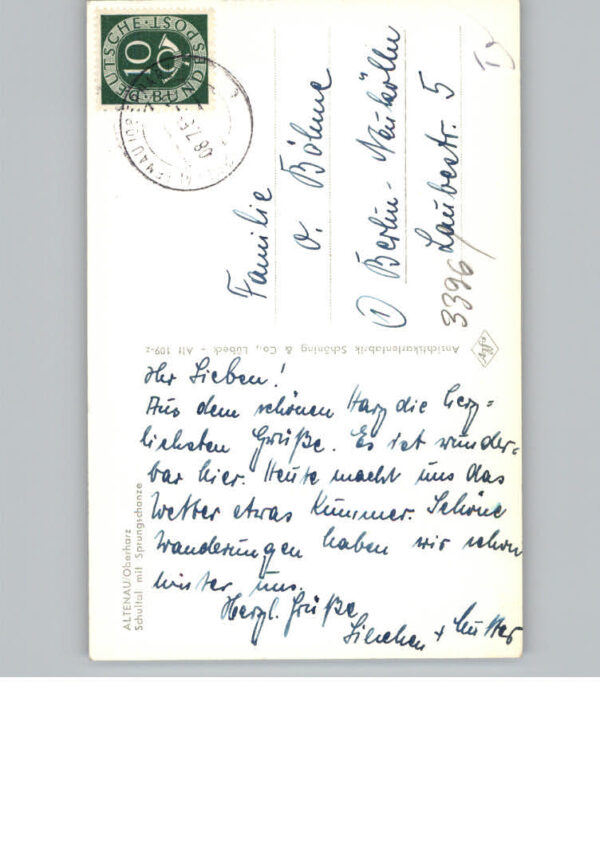 Ihr Lieben!
Aus dem schönen Harz die herz-
lichsten Grüße. Es ist wunder-
bar hier. Heute macht uns das
Wetter etwas Kummer. Schöne
Wanderungen haben wir schon
hinter uns.
Herzl. Grüße
Lienchen + Mutter
ALTENAU/Oberharz
Schultal mit Sprungschanze
Ansichtskartenfabrik Schöning & Co., Lübeck - Alt 109-z
Familie
v. Böhme
① Berlin-Neukölln
Laubestr. 5
3396
DEUTSCHE BUNDESPOST
10